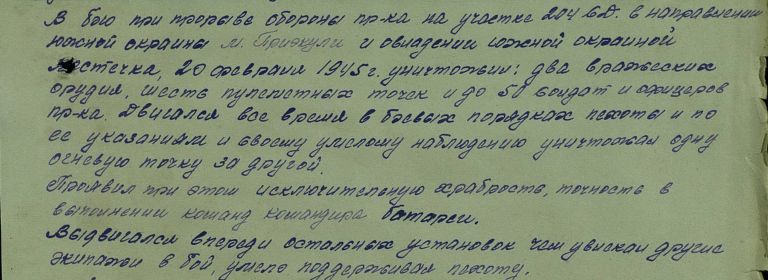 В бою при прорыве обороны пр-ка на участке 204 СД. в направлении
южной окраины м. Приэкули и овладении южной окраиной
местечка, 20 февраля 1945 г. уничтожил: два вражеских
орудия, шесть пулеметных точек и до 50 солдат и офицеров
пр-ка. Двигался все время в боевых порядках пехоты и по
ее указаниям и своему умелому наблюдению уничтожал одну
огневую точку за другой.
Проявил при этом исключительную храбрость, точность в
выполнении команд командира батареи.
Выдвигался впереди остальных установок чем увлекал другие
экипажи в бой, умело поддерживая пехоту.